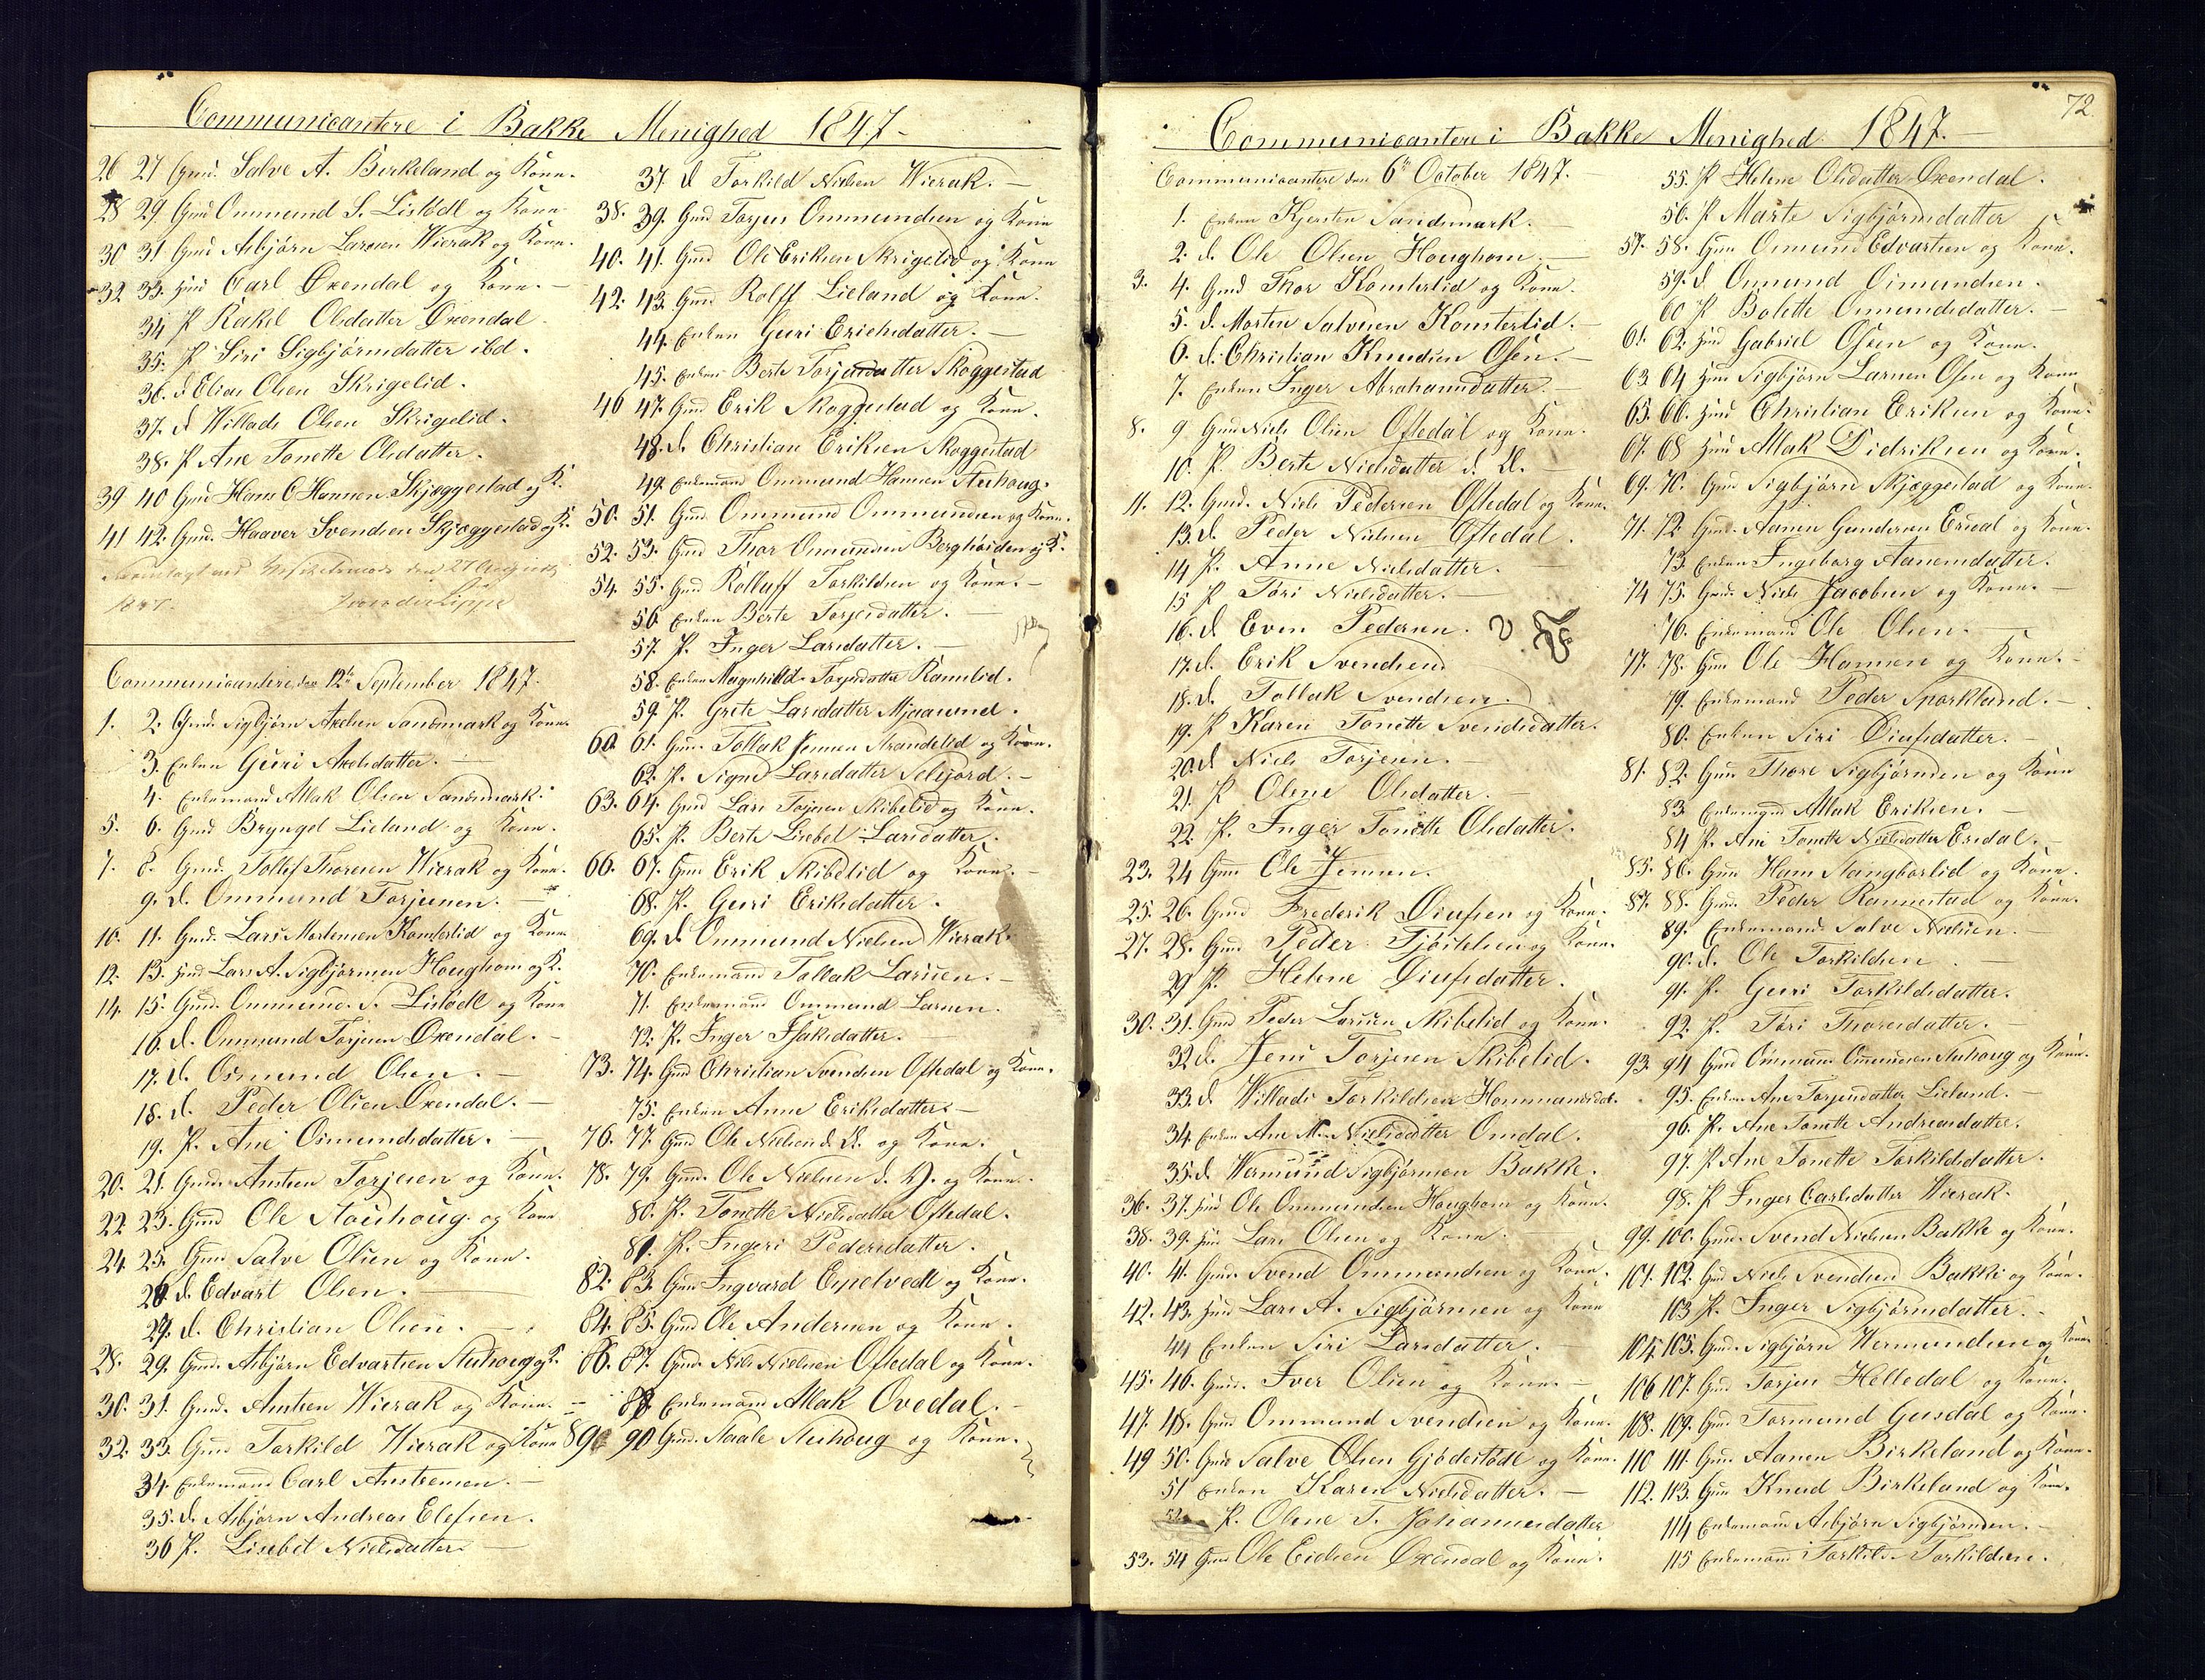 Communicantere i Bakke Menighed 1847 -
26 27 Gmd. Salve A. Birkeland og Kone.
28 29 Gmd Ommund S. Lislødl og Kone
30 31 Gmd Asbjørn Larssen Wierak og Kone.
32 33. Hmd Carl Oxendal og Kone. -
34 P Rakel Olsdatter Oxendal
35. P. Siri Sigbjørnsdatter ibd.
36. d Elias Olsen Skrigelid.
37. d Willads Olsen Skrigelid.
38. P Ane Tonette Olsdatter.
39 40 Gmd Hans C Hansen Skjæggestad og K.
41 42. Gmd. Haaver Svendsen Skjæggestad og K.
den 27 August
1847.
Communicantere den 12te September 1847.
1. 2. Gmd. Sigbjørn Axelsen Sandsmark og Kone
3. Enken Guri Axelsdatter. -
4. Enkemand Atlak Olsen Sandsmark.
5. 6. Gmd Bryngel Lieland og Kone.
7. 8. Gmd. Tollef Thorsen Wierak og Kone.
9. d. Ommund Torjussen. -
10. 11. Gmd. Lars Mortensen Komlerlid og Kone
12. 13. Hmd Lars A. Sigbjørnsen Houghom og K.
14. 15. Gmd. Ommund S. Lislødl og Kone
16. d. Ommund Torjesen Oxendal. -
17. d. Osmund Olsen. -
18. d. Peder Olsen Oxendal. -
19. P. Ane Osmundsdatter. -
20. 21. Gmd. Austen Torjesen og Kone.
22 23. Gmd Ole Stouhoug og Kone
24. 25. Gmd Salve Olsen og Kone.
26 d. Edvart Olsen. -
27. d. Christian Olsen. -
28. 29. Gmd. Asbjørn Edvartsen Stuhoug og K.
30. 31. Gmd. Austen Wierak og Kone. -
32. 33. Gmd Torkild Wierak og Kone
34. Enkemand Carl Austensen. -
35. d. Asbjørn Andreas Elefsen.
36 P. Lisebet Nielsdatter. -
37. d Torkild Nielsen Wierak. -
38. 39. Gmd Torjus Ommundsen og Kone
40. 41. Gmd Ole Eriksen Skrigelid og Kone
42. 43. Gmd Rolff Lieland og Kone.
44. Enken Guri Erichsdatter. -
45. Enken Berte Torjusdatter Skoggestad
46 47. Gmd Erik Skoggestad og Kone.
48. d. Christian Eriksen Skoggestad
49. Enkemand Ommund Hansen Stuhoug.
50. 51. Gmd Ommund Ommundsen og Kone.
52. 53. Gmd Thor Ommundsen Berghøiden og K.
54. 55. Gmd Rolluff Torkildsen og Kone. -
56 Enken Berte Torjesdatter. -
57. P. Inger Larsdatter. -
58. Enken Magnhild Torjusdatter Ramslid.
59. P. Grete Larsdatter Mjaasund.
60 61. Gmd. Tollak Jensen Strandelid og Kone.
62. P. Signe Larsdatter Selsjord. -
63. 64. Gmd Lars Torjesen Skibelid og Kone.
65. P. Berte Lisebel Larsdatter.
66. 67. Gmd Erik Skibelid og Kone. -
68. P. Guri Eriksdatter.
69. d. Ommund Nielsen Wierak.
70. Enkemand Tollak Larssen. -
71. Enkemand Ommund Larsen.
72. P. Inger Isaksdatter. -
73. 74. Gmd Christian Svendsen Oftedal og Kone.
75. Enken Anne Eriksdatter. -
76. 77. Gmd Ole Nielsen d. Æ. og Kone.
78. 79. Gmd. Ole Nielsen d. Y. og Kone.
80. P. Tonette Nielsdatter Oftedal.
81. P. Ingeri Pedersdatter.
82. 83. Gmd Ingvard Espelvedt og Kone.
84. 85. Gmd Ole Andersen og Kone.
86. 87. Gmd. Nils Nielsen Oftedal og Kone.
88 Enkemand Atlak Ovedal. -
89 90 Gmd. Staale Stuhoug og Kone.
72
Communicantere i Bakke Menighed 1847. -
Communicantere den 6te October 1847.
1. Enken Kjersten Sandsmark. -
2. d. Ole Olsen Houghom. -
3. 4. Gmd Thor Komlerlid og Kone.
5. d. Morten Salvesen Komlerlid. -
6. d. Christian Knudsen Osen. -
7. Enken Inger Abrahamsdatter. -
8. 9 Gmd Niels Olsen Oftedal og Kone.
10. P. Berte Nielsdatter d. Æ. -
11. 12. Gmd. Niels Pedersen Oftedal og Kone.
13. d. Peder Nielsen Oftedal.
14 P. Anne Nielsdatter. -
15 P Tori Nielsdatter. -
16. d Even Pedersen.
17. d. Erik Svendsen
18. d. Tollak Svendsen.
19. P Karen Tonette Svendsdatter.
20. d Niels Torjesen. -
21. P Olene Olsdatter. -
22. P. Inger Tonette Olsdatter.
23. 24 Gmd Ole Jensen.
25. 26. Gmd Frederik Diufsen og Kone.
27. 28. Gmd Peder Tjørtelsen og Kone.
29 P. Helene Diufsdatter.
30. 31. Gmd Peder Larssen Skibelid og Kone.
32 d. Jens Torjesen Skibelid.
33. d Willads Torkildsen Hommansdal.
34. Enken Ane M. Nielsdatter Omdal.
35. d Wermund Sigbjørnsen Bakke.
36. 37. Hmd Ole Ommundsen Houghom og Kone.
38. 39. Hmd Lars Olsen og Kone.
40. 41. Gmd. Svend Ommundsen og Kone.
42. 43. Hmd Lars A. Sigbjørnsen og Kone
44 Enken Siri Larsdatter. -
45. 46. Gmd. Iver Olsen og Kone. -
47. 48. Gmd Ommund Svendsen og Kone.
49 50. Gmd Salve Olsen Gjødestødl og Kone.
51 Enken Karen Nielsdatter. -
52 P. Olene T. Johannesdatter
53. 54 Gmd Ole Eidsen Oxendal og Kone.
55. P Helene Olsdatter Oxendal.
56. P Marte Sigbjørnsdatter
57. 58. Gmd Osmund Edvartsen og Kone.
59. d Osmund Osmundsen.
60 P Bolette Osmundsdatter. -
61. 62. Hmd Gabriel Osen og Kone.
63 64 Hmd Sigbjørn Larssen Osen og Kone
65. 66. Hmd Christian Eriksen og Kone.
67. 68 Hmd Atlak Didriksen og Kone.
69. 70. Gmd Sigbjørn Skjæggestad og Kone.
71. 72. Gmd. Aanen Gundersen Ersdal og Kone.
73 Enken Ingeborg Aanensdatter.
74 75. Gmd. Niels Jacobsen og Kone. -
76. Enkemand Ole Olsen. -
77. 78. Gmd Ole Hansen og Kone. -
79. Enkemand Peder Sporkland. -
80. Enken Siri Diufsdatter. -
81. 82. Gmd Thore Sigbjørnsen og Kone
83 Enkemand Atlak Eriksen. -
84 P. Ane Tonette Nielsdatter Ersdal. -
85. 86. Gmd Hans Stangborlid og Kone.
87. 88. Gmd. Peder Rannestad og Kone.
89. Enkemand Salve Nielsen. -
90. d. Ole Torkildsen. -
91. P. Guri Torkildsdatter.
92. P. Tori Thoresdatter. -
93. 94 Gmd Ommund Ommundsen Stuhoug og Kone.
95. Enken Ane Torjusdatter Lieland. -
96. P. Ane Tonette Andreasdatter.
97. P Ane Tonette Torkildsdatter.
98. P Inger Carlsdatter Wierak.
99. 100. Gmd. Svend Nielsen Bakke og Kone.
101. 102. Gmd Niels Svendsen Bakke og Kone.
103 P. Inger Sigbjørnsdatter. -
104. 105. Gmd. Sigbjørn Wermundsen og Kone
106 107. Gmd Torjus Helledal og Kone.
108. 109. Gmd. Tormund Gusdal og Kone.
110 111. Gmd Aanen Birkeland og Kone.
112. 113. Gmd Knud Birkeland og Kone.
114 Enkemand Asbjørn Sigbjørnsen. -
115 Enkemand Torkild Torkildsen.